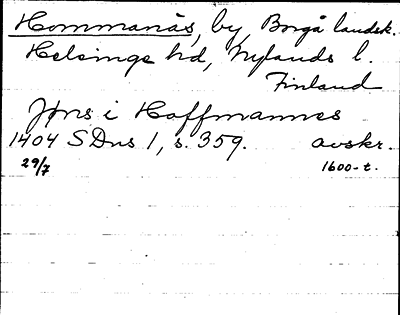 Hommanäs, by, Borgå landsk.
Helsinge hd, Nylands l.
Finland
Jöns i Hoffmannes
1404 SDns 1, s. 359. avskr.
29/7 1600-t.